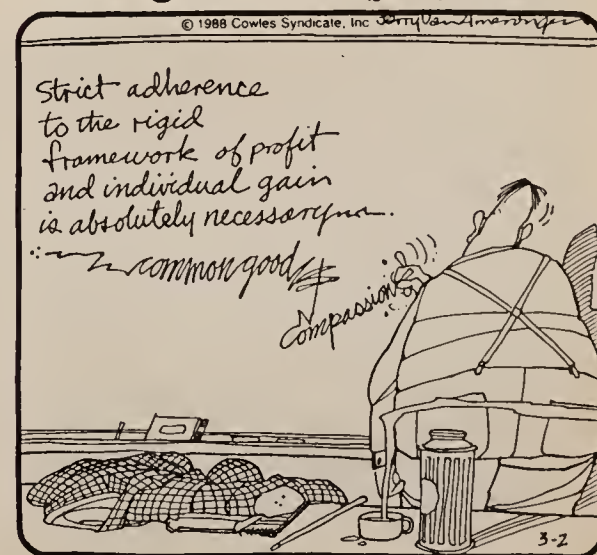 © 1988 Cowles Syndicate, Inc Jerry Van Amerongen
Strict adherence
to the rigid
framework of profit
and individual gain
is absolutely necessary
common good
compassion
3-2